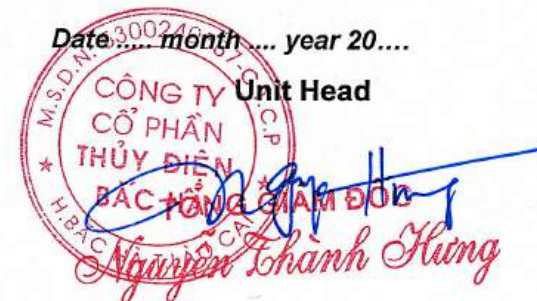 Date ..... month .... year 20....
Unit Head
M.S.D.N:
C.P
CÔNG TY
CỔ PHẦN
THỦY ĐIỆN
BẮC
TỔNG GIÁM ĐỐC
Nguyễn Thành Hưng